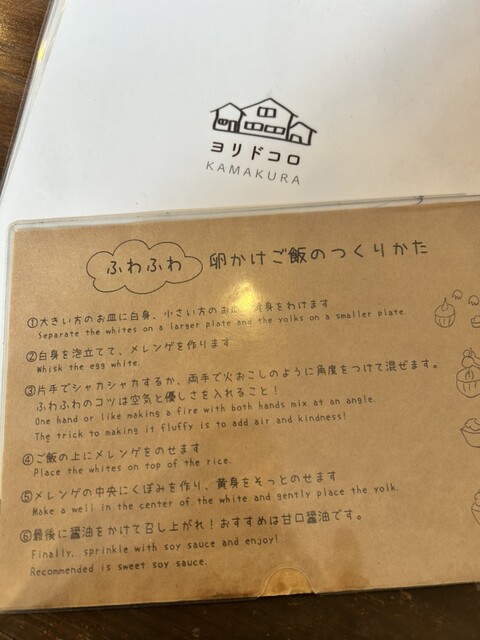 ヨリドコロ
KAMAKURA
ふわふわ 卵かけご飯のつくりかた
①大きい方のお皿に白身、小さい方のお皿に黄身をわけます
Separate the whites on a larger plate and the yolks on a smaller plate.
②白身を泡立てて、メレンゲを作ります
Whisk the egg white.
③片手でシャカシャカするか、両手で火おこしのように角度をつけて混ぜます。
ふわふわのコツは空気と優しさを入れること！
One hand or like making a fire with both hands mix at an angle.
The trick to making it fluffy is to add air and kindness!
④ご飯の上にメレンゲをのせます
Place the whites on top of the rice.
⑤メレンゲの中央にくぼみを作り、黄身をそっとのせます
Make a well in the center of the white and gently place the yolk.
⑥最後に醤油をかけて召し上がれ！おすすめは甘口醤油です。
Finally, sprinkle with soy sauce and enjoy!
Recommended is sweet soy sauce.